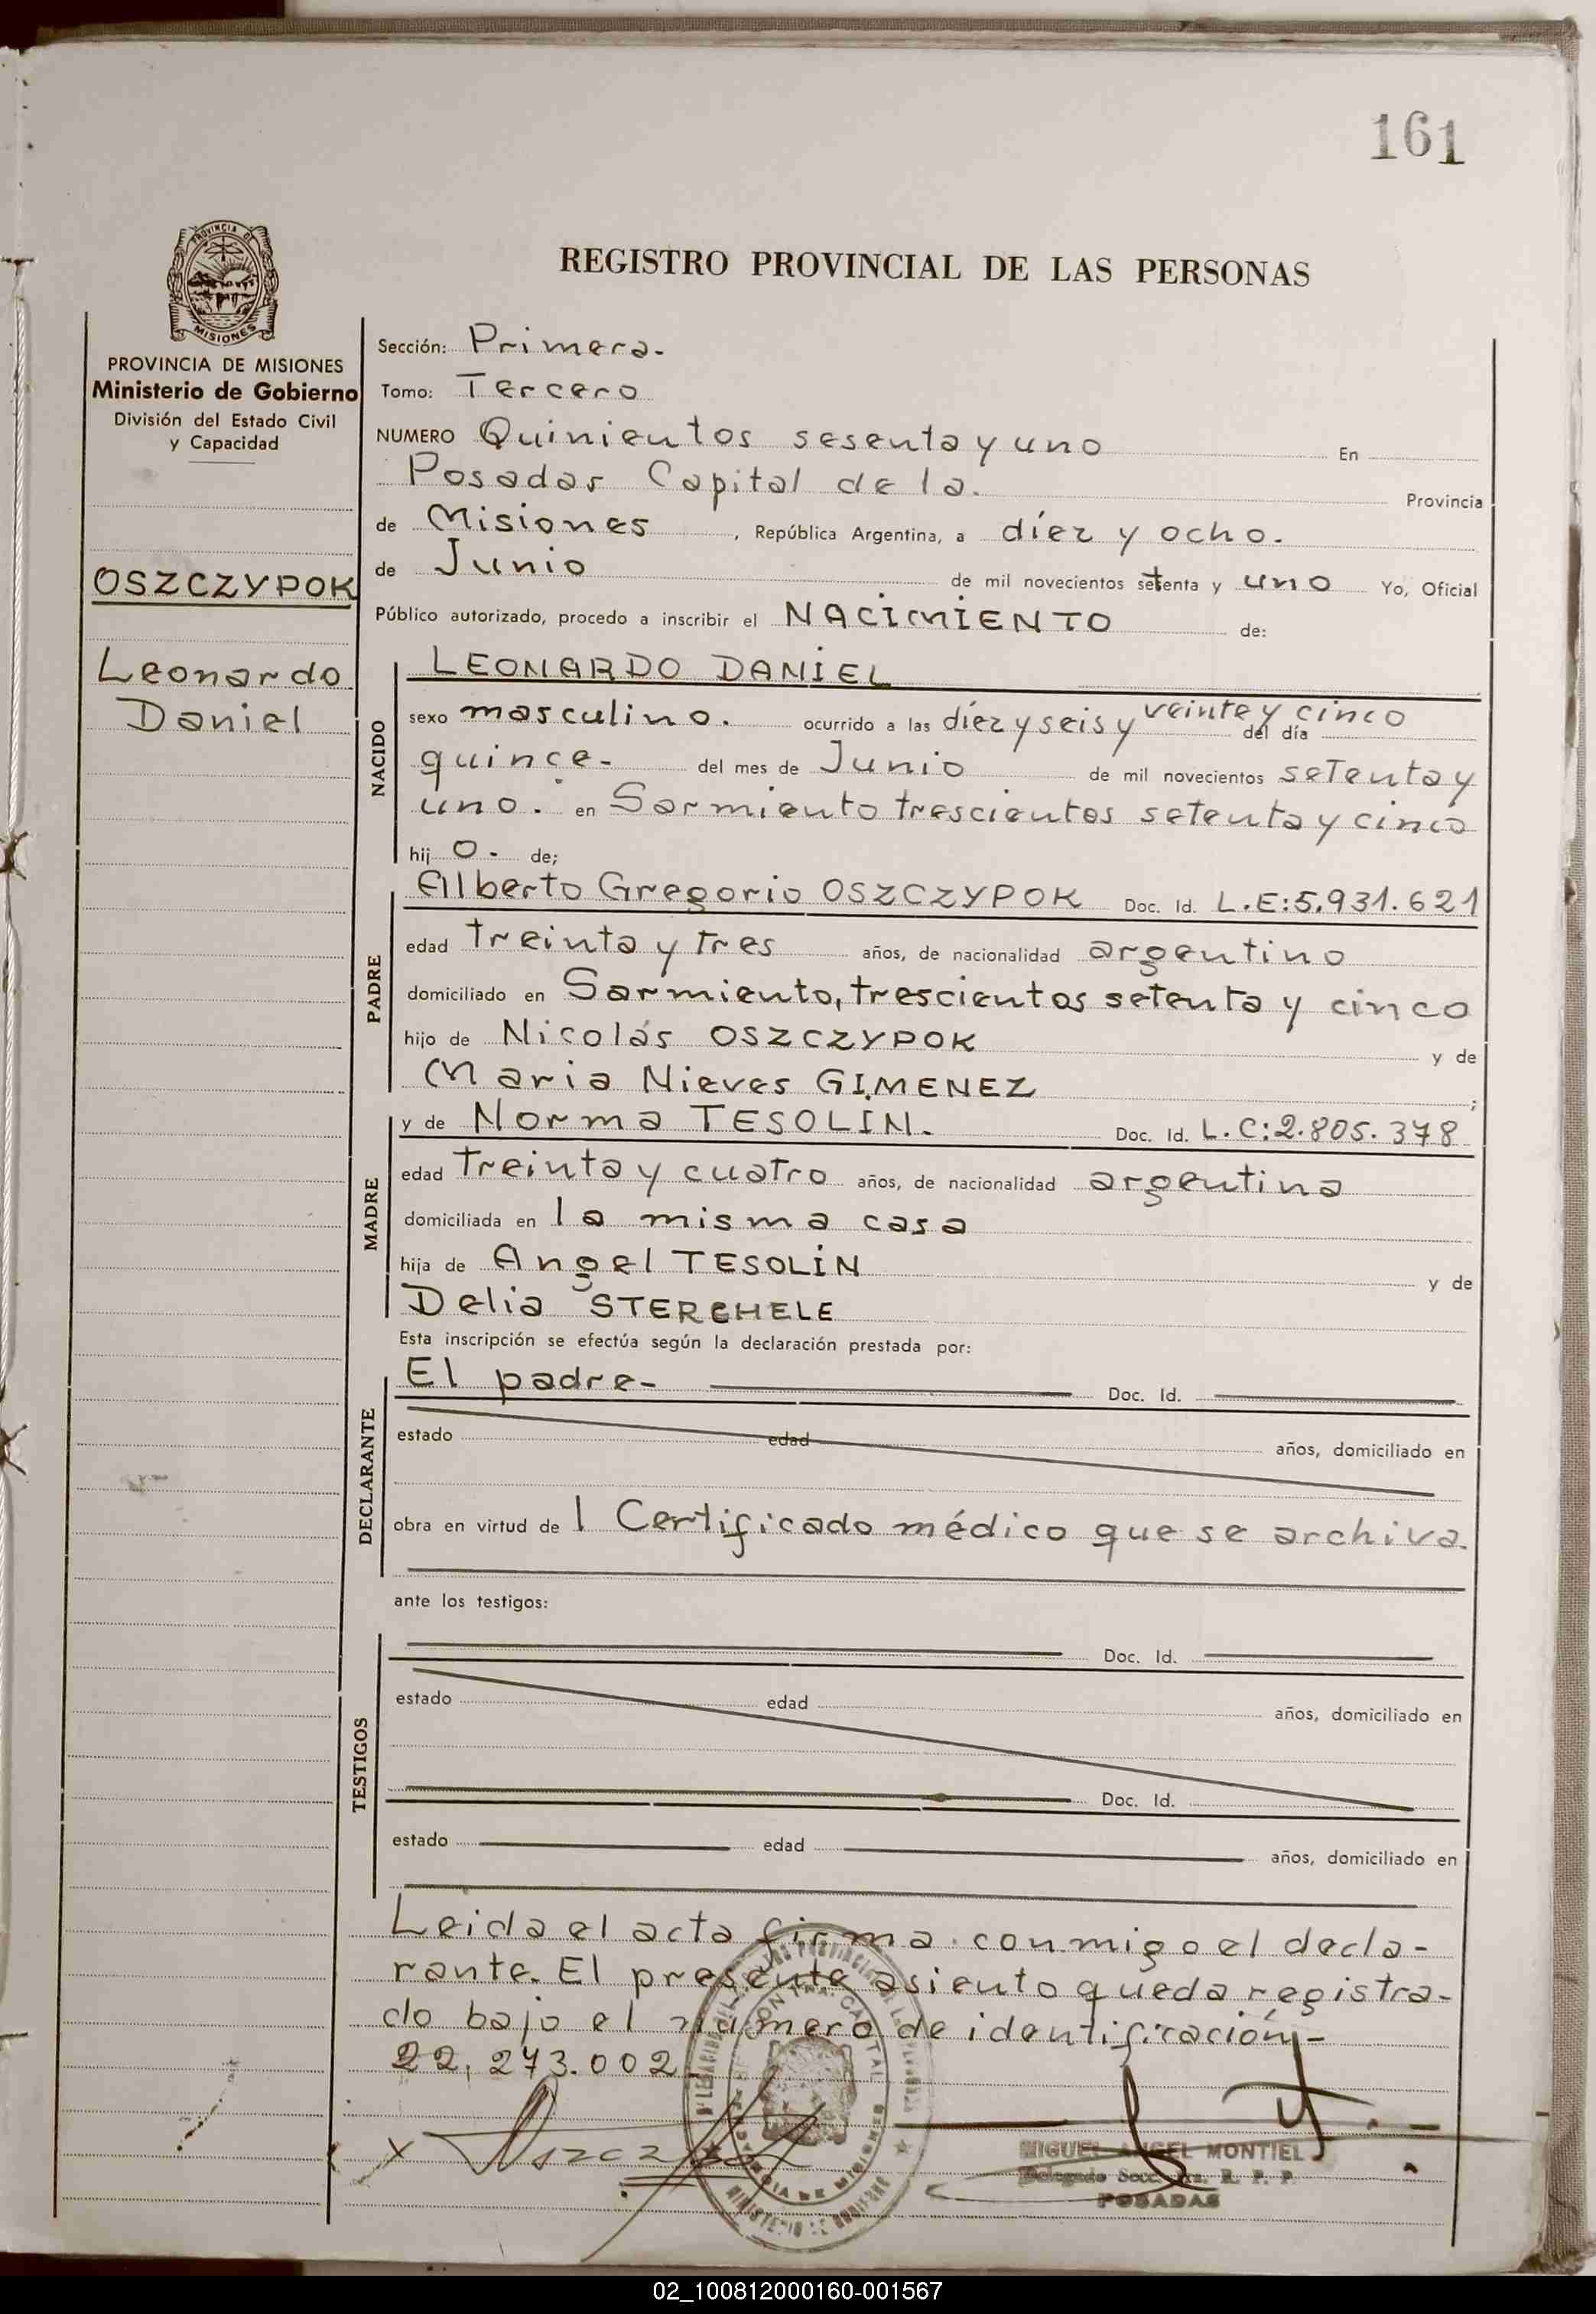 161
PROVINCIA DE
MISIONES
REGISTRO PROVINCIAL DE LAS PERSONAS
PROVINCIA DE MISIONES
Ministerio de Gobierno
División del Estado Civil
y Capacidad
OSZCZYPOK
Leonardo
Daniel
Sección: Primera.
Tomo: Tercero
NUMERO Quinientos sesenta y uno En
Posadas Capital de la. Provincia
de Misiones, República Argentina, a díez y ocho.
de Junio de mil novecientos setenta y uno Yo, Oficial
Público autorizado, procedo a inscribir el NACIMIENTO de:
NACIDO
LEONARDO DANIEL
sexo masculino. ocurrido a las díez y seis y veinte y cinco del día
quince- del mes de Junio de mil novecientos setenta y
uno. en Sarmiento trescientos setenta y cinco
hij o. de;
PADRE
Alberto Gregorio OSZCZYPOK Doc. Id. L.E:5.931.621
edad treinta y tres años, de nacionalidad argentino
domiciliado en Sarmiento, trescientos setenta y cinco
hijo de Nicolás OSZCZYPOK y de
Maria Nieves GIMENEZ ;
MADRE
y de Norma TESOLIN. Doc. Id. L.C:2.805.378
edad treinta y cuatro años, de nacionalidad argentina
domiciliada en la misma casa
hija de Angel TESOLIN y de
Delia STERCHELE
Esta inscripción se efectúa según la declaración prestada por:
DECLARANTE
El padre- Doc. Id.
estado edad años, domiciliado en
obra en virtud de l Certificado médico que se archiva.
ante los testigos:
TESTIGOS
Doc. Id.
estado edad años, domiciliado en
Doc. Id.
estado edad años, domiciliado en
Leida el acta firma conmigo el decla-
rante. El presente asiento queda registra-
do bajo el número de identificación-
22,273.002
MIGUEL ANGEL MONTIEL
Delegado Secc. 1ra. R. P. P.
POSADAS
02_100812000160-001567